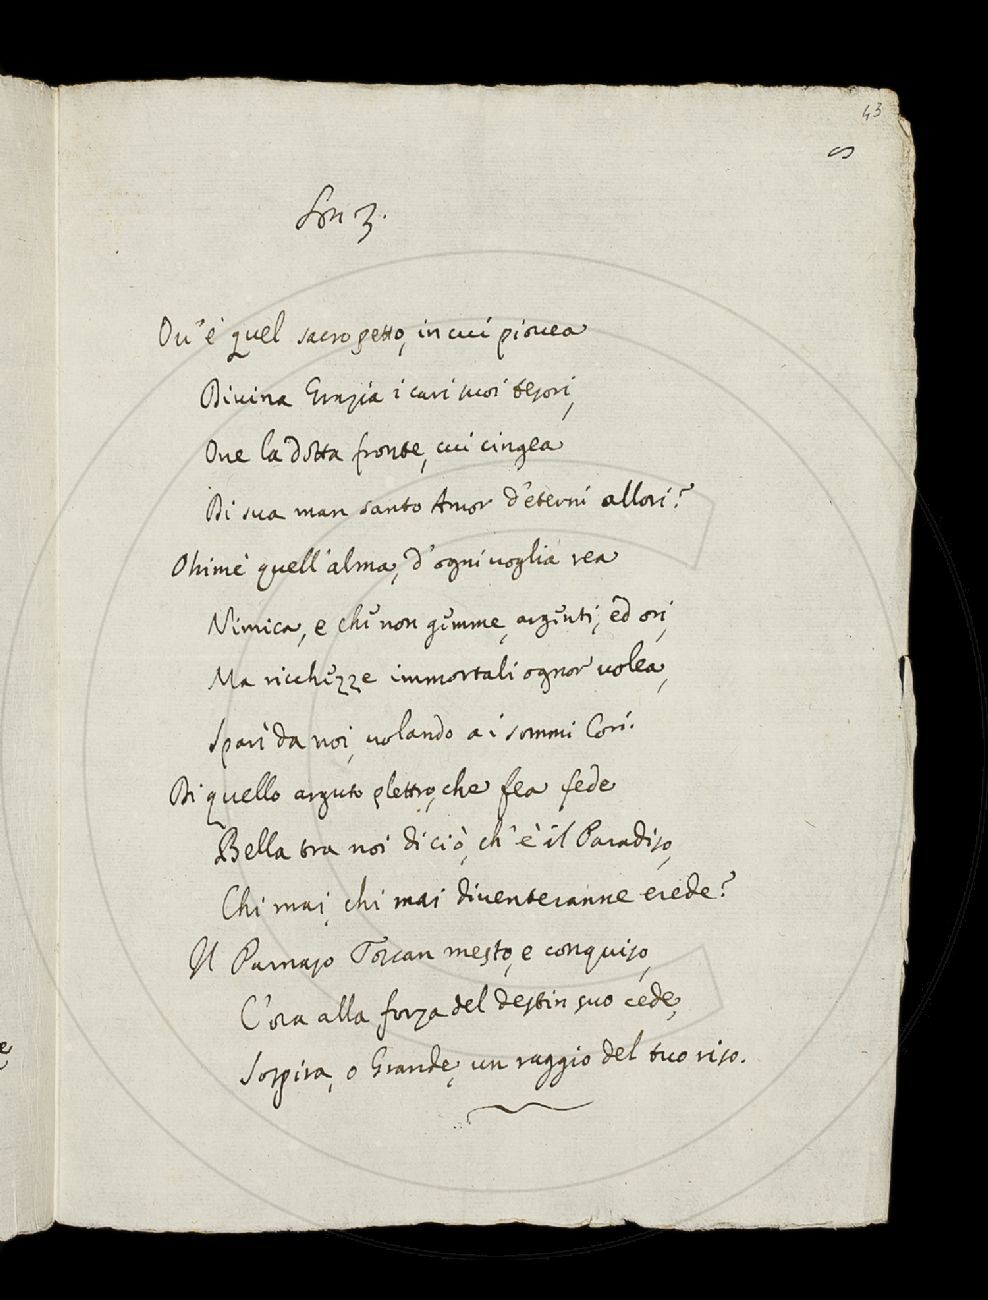 43
Son 3.
Ou' è quel sacro petto, in cui piouea
Diuina Grazia i cari suoi tesori,
Oue la dotta fronte, cui cingea
Di sua man santo Amor d'eterni allori?
Ohimè quell'alma, d'ogni uoglia rea
Nimica, e che non gemme, argenti, ed ori,
Ma ricchezze immortali ognor uolea,
Sparì da noi, uolando a i sommi Cori.
Di quello arguto plettro, che fea fede
Bella tra noi di ciò, ch' è il Paradiso,
Chi mai, chi mai diuenteranne erede?
Il Parnaso Toscan mesto, e conquiso,
C'ora alla forza del destin suo cede,
Sospira, o Grande, un raggio del tuo riso.